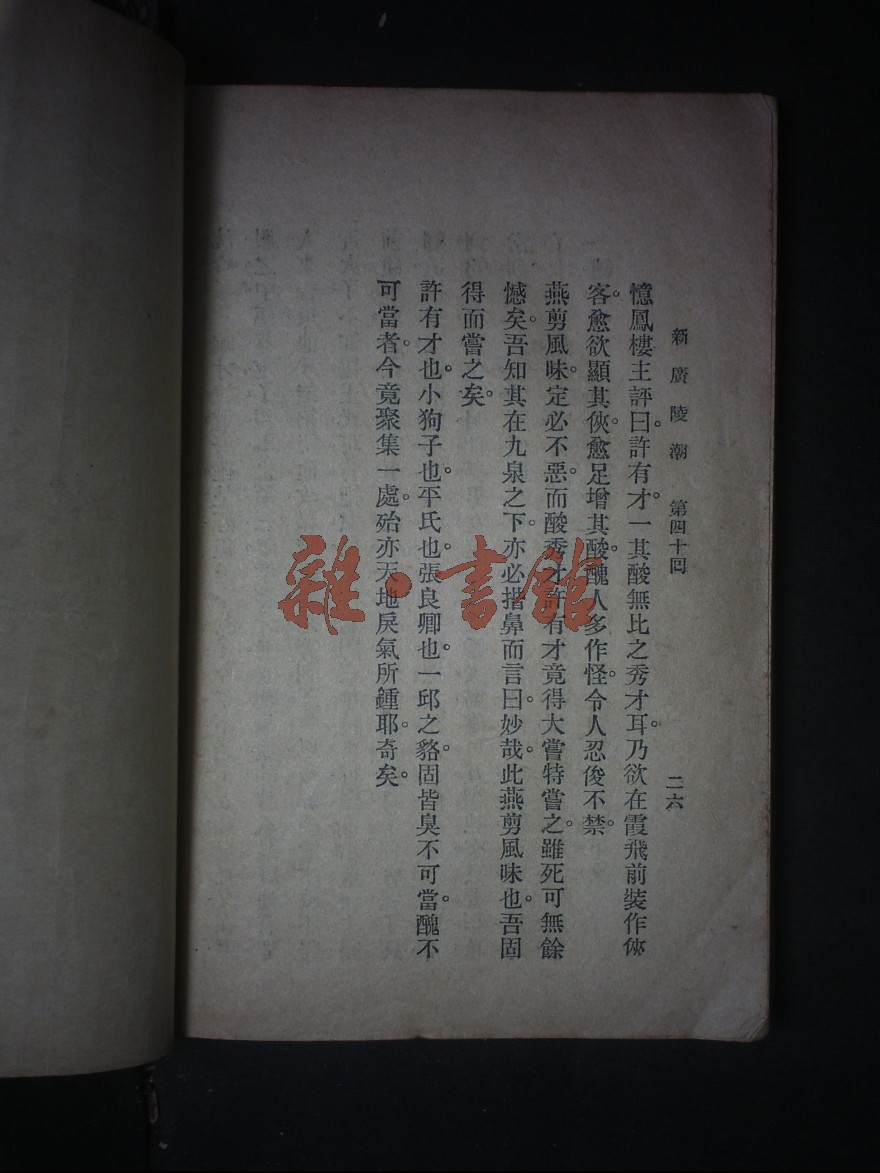 新廣陵潮　第四十回　二六
憶鳳樓主評曰。許有才。一其酸無比之秀才耳。乃欲在霞飛前裝作俠
客。愈欲顯其俠。愈足增其酸。醜人多作怪。令人忍俊不禁。
燕剪風味。定必不惡。而酸秀才許有才竟得大嘗特嘗之。雖死可無餘
憾矣。吾知其在九泉之下。亦必揩鼻而言曰。妙哉。此燕剪風味也。吾固
得而嘗之矣。
許有才也。小狗子也。平氏也。張良卿也。一邱之貉。固皆臭不可當。醜不
可當者。今竟聚集一處。殆亦天地戾氣所鍾耶。奇矣。
雜·書館